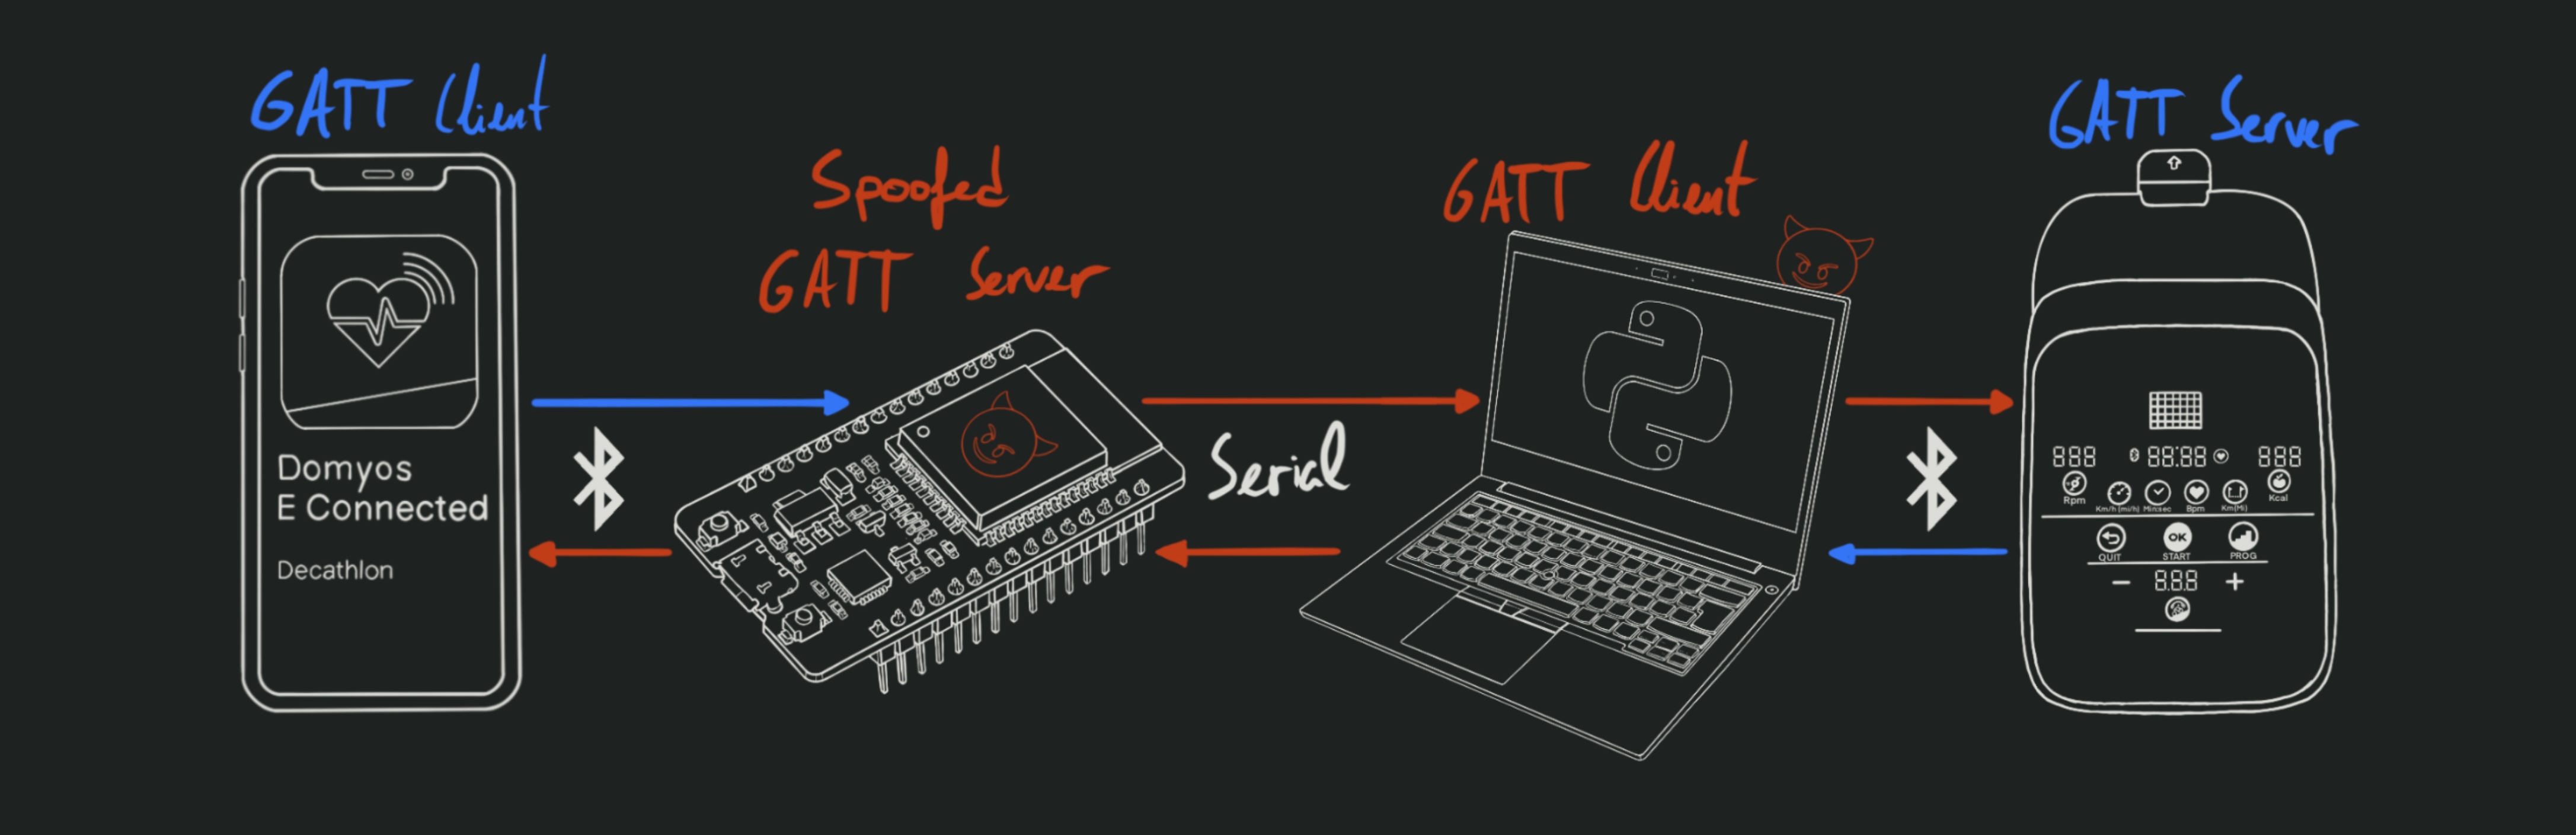 GATT Client
Domyos
E Connected
Decathlon
Spoofed
GATT Server
Serial
GATT Client
GATT Server
888 88:88 888
Rpm Km/h (mi/h) Min:sec Bpm Km(Mi) Kcal
OK
QUIT START PROG
− 8.8.8 +